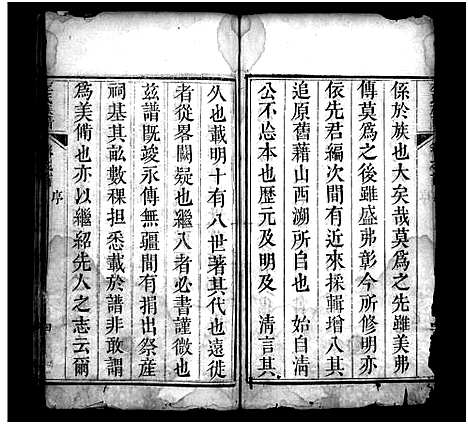 係於族也大矣哉莫爲之先雖美弗
傳莫爲之後雖盛弗彰今所修明亦
依先君編次間有近來採輯增入其
追原舊藉山西溯所自也 始自淸
公不忘本也歷元及明及 淸言其
久也載明十有八世著其代也遠徙
者從畧闕疑也繼入者必書謹微也
茲譜既竣永傳無疆間有捐出祭産
祠基其畝數稞担悉載於譜非敢謂
爲美術也亦以繼紹先人之志云爾
序